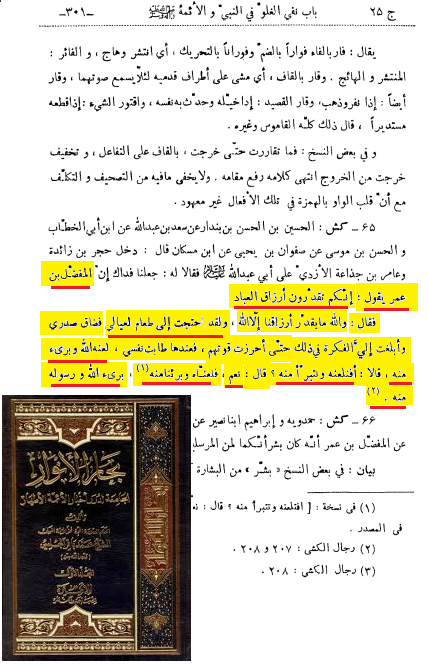 ج ٢٥ باب نفي الغلوّ في النبيّ و الأئمة ــ٣٠١ــ
يقال : فار بالفاء فواراً بالضمّ وفوراناً بالتحريك ، أي انتشر وهاج ، و الفائر :
المنتشر و الهائج . وقار بالقاف ، أي مشى على أطراف قدميه لئلّايسمع صوتهما ، وقار
أيضاً : إذا نفروذهب، وقار القصيد : إذاخيّله وحدّث به نفسه ، واقتور الشيء :إذاقطعه
مستديراً ، قال ذلك كلّه القاموس وغيره .
و في بعض النسخ : فما تقاررت حتّى خرجت ، بالقاف على التفاعل ، و تخفيف
خرجت من الخروج انتهى كلامه رفع مقامه . ولايخفى مافيه من التصحيف و التكلّف
مع أنّ قلب الواو بالهمزة في تلك الأفعال غير معهود .
٦٥ ــ كش : الحسين بن الحسن بن بندارعن سعدبن عبدالله عن ابن أبي الخطّاب
و الحسن بن موسى عن صفوان بن يحيى عن ابن مسكان قال : دخل حجر بن زائدة
وعامر بن جذاعة الأزديّ على أبي عبدالله عليه السلام فقالا له : جعلنا فداك إنّ المفضّل بن
عمر يقول : إنّكم تقدّرون أرزاق العباد
فقال : والله مايقدّر أرزاقنا إلّاالله ، ولقد احتجت إلى طعام لعيالي فضاق صدري
وأبلغت إليّ الفكرة في ذلك حتّى أحرزت قوتهم ، فعندها طابت نفسي ، لعنه الله وبرىء
منه ، قالا : أفنلعنه ونتبرّأ منه ؟ قال : نعم ، فلعنّاه وبرئنامنه (١) ، برىء الله و رسوله
منه . (٢)
٦٦ ــ كش : حمدويه و إبراهيم ابنا نصير عن
عن المفضّل بن عمر أنّه كان يشر أنّكما لمن المرسلي
بيان : في بعض النسخ « بشّر » من البشارة
(١) فى نسخة : [ افتلعنه وتتبرأ منه ؟ قال : نع
فى المصدر .
(٢) رجال الكشى : ٢٠٧ و ٢٠٨ .
(٣) رجال الكشى : ٢٠٨ .
بحار الأنوار
الجامعة لدرر أخبار الأئمة الأطهار